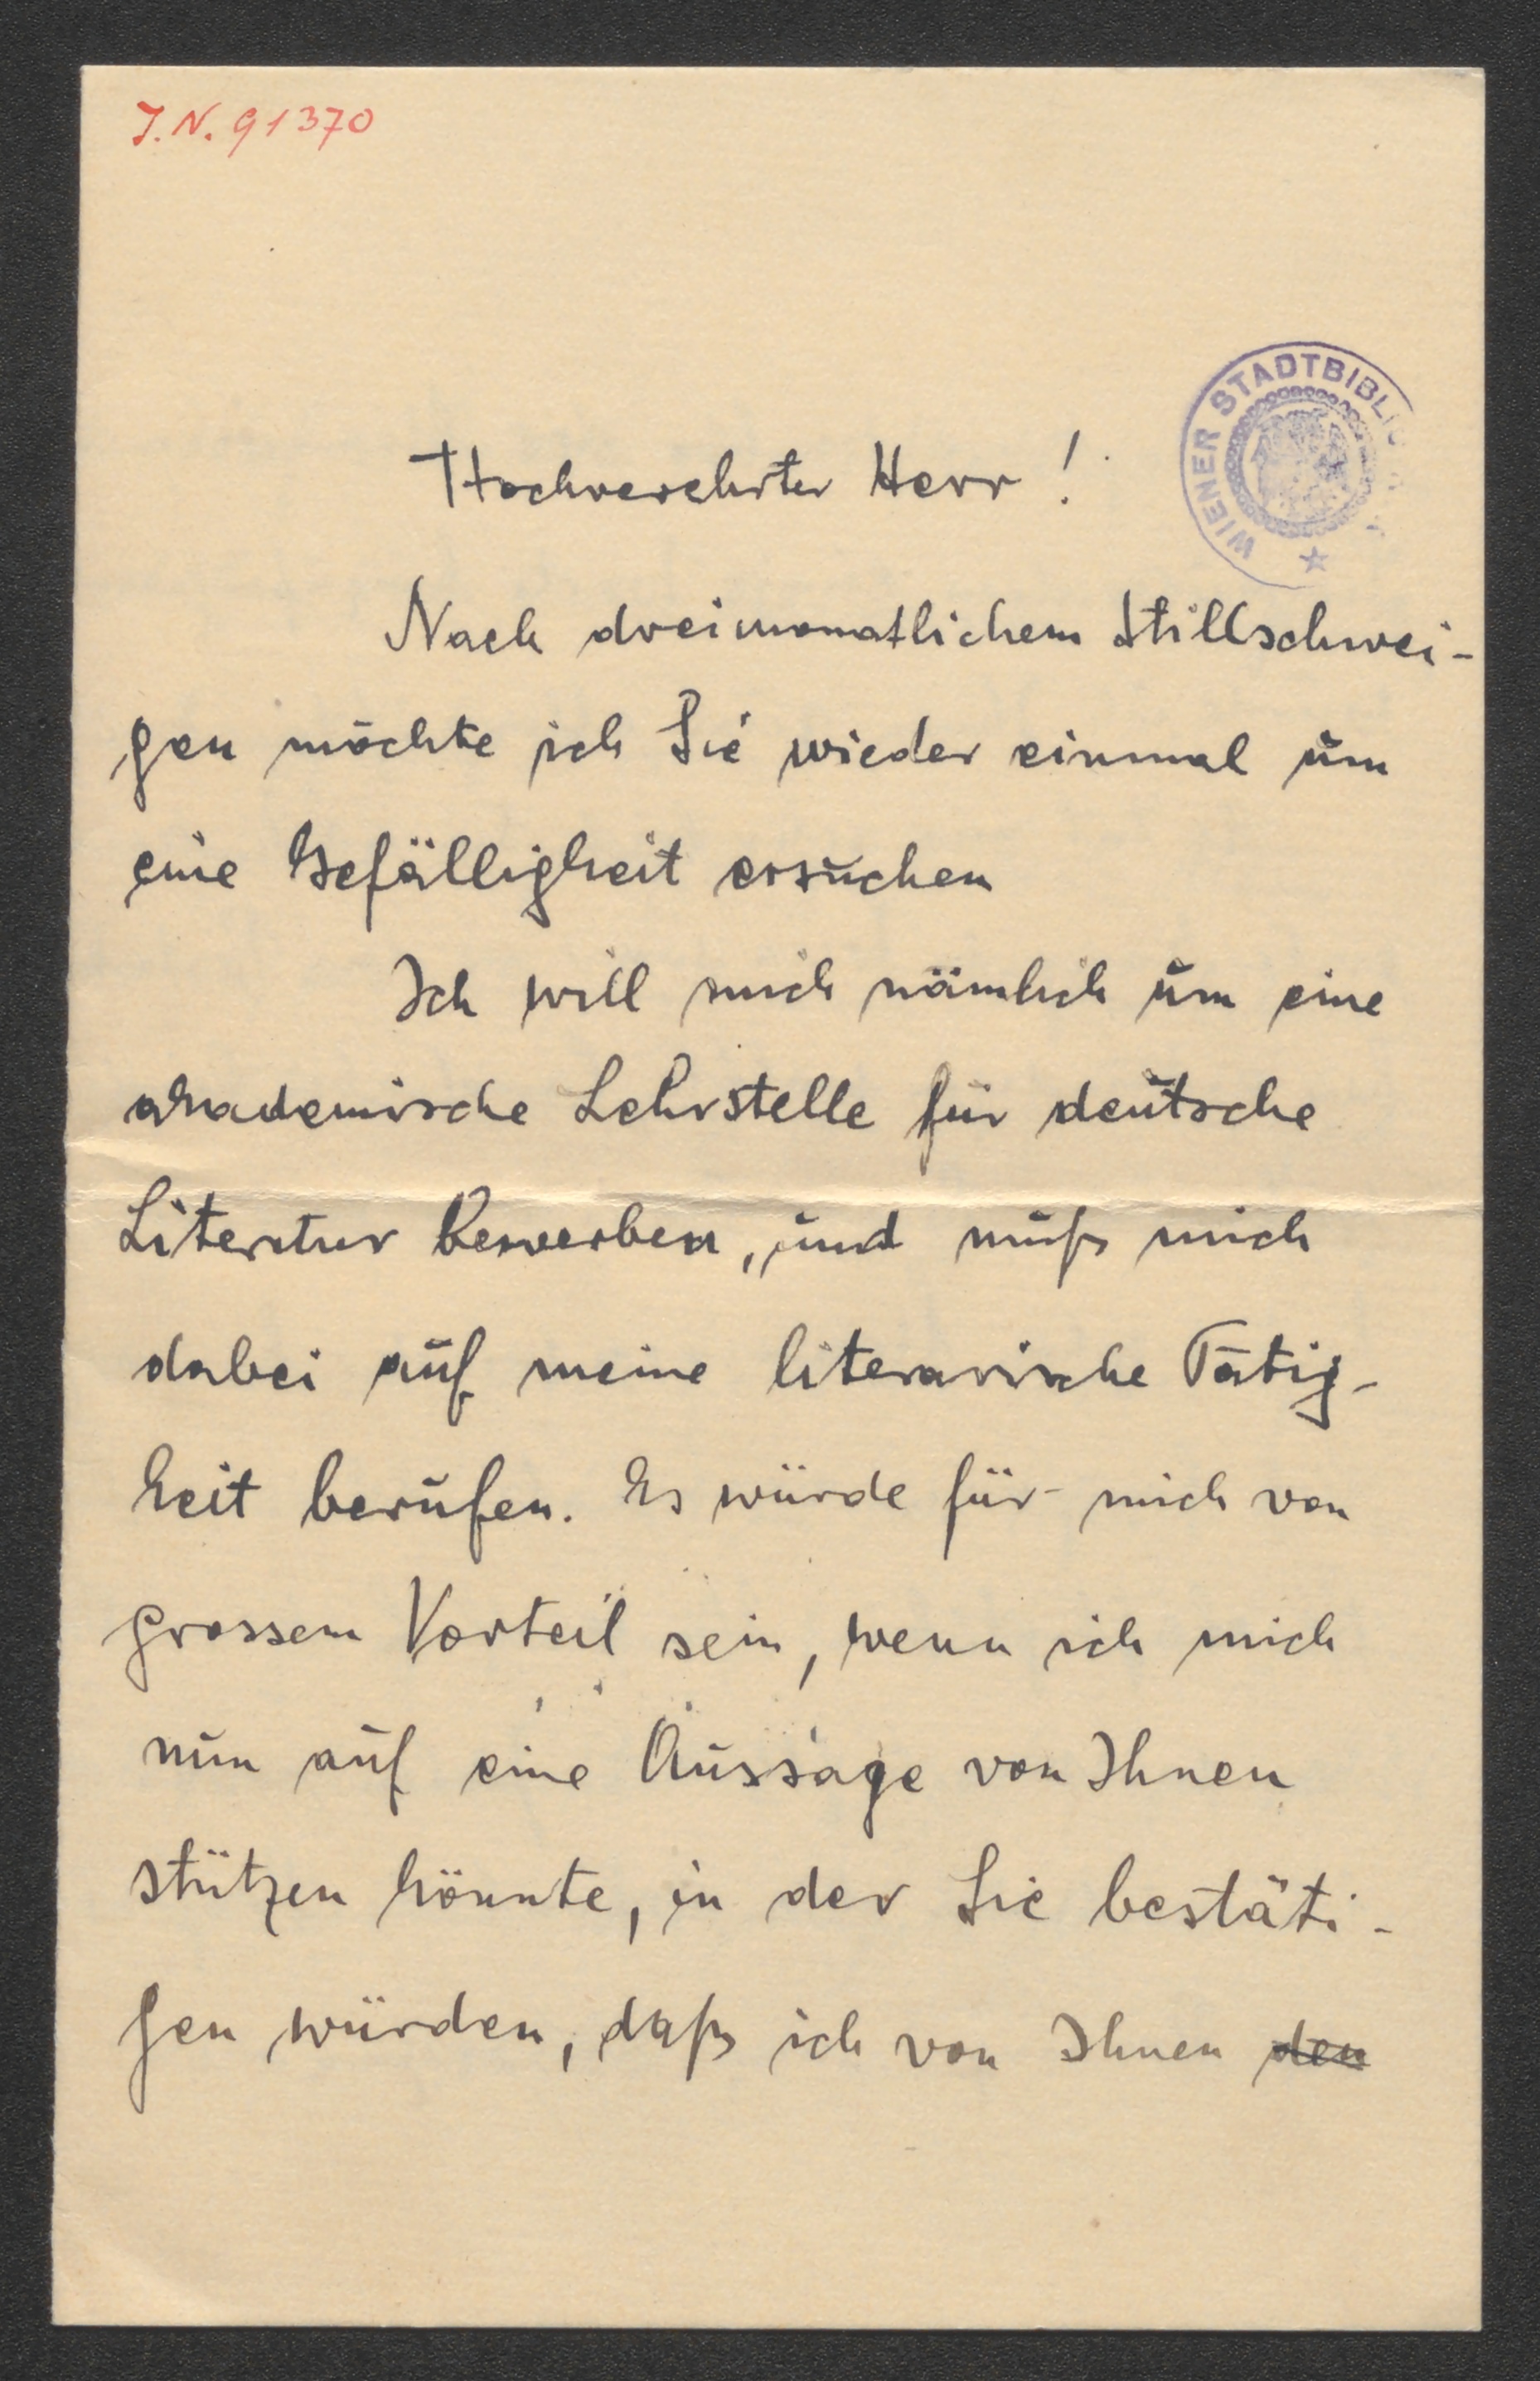 J.N. 91370
WIENER STADTBIBLI
Hochverehrter Herr!
Nach dreimonatlichem Stillschwei-
gen möchte ich Sie wieder einmal um
eine Gefälligkeit ersuchen
Ich will mich nämlich um eine
akademische Lehrstelle für deutsche
Literatur bewerben, und muß mich
dabei auf meine literarische Tätig-
keit berufen. Es würde für mich von
grossem Vorteil sein, wenn ich mich
nun auf eine Aussage von Ihnen
stützen könnte, in der Sie bestäti-
gen würden, daß ich von Ihnen den